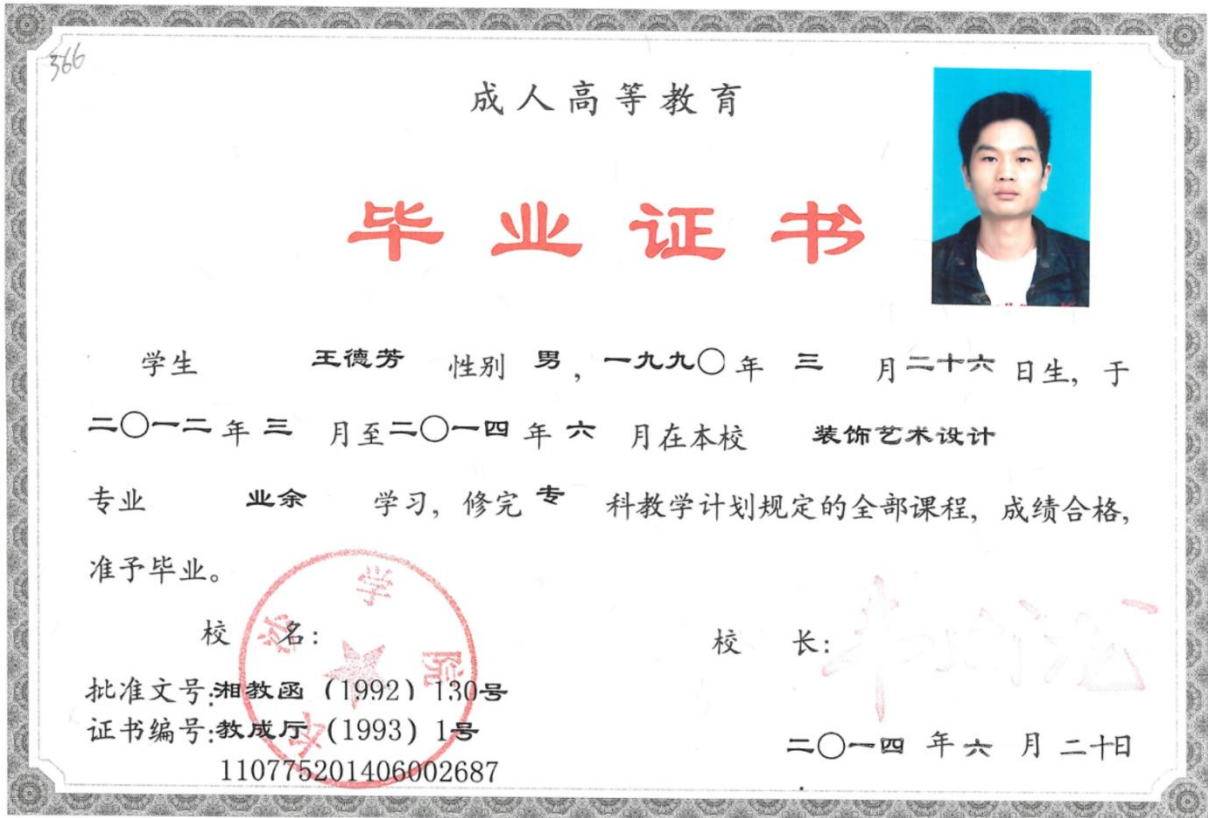 366
成人高等教育
毕业证书
学生 王德芳 性别 男，一九九〇年 三 月二十六日生，于
二〇一二年 三 月至二〇一四年 六 月在本校 装饰艺术设计
专业 业余 学习，修完 专 科教学计划规定的全部课程，成绩合格，
准予毕业。
校 名： 校 长：
长沙学院
批准文号:湘教函（1992）130号
证书编号:教成厅（1993）1号
110775201406002687
二〇一四 年 六 月 二十日